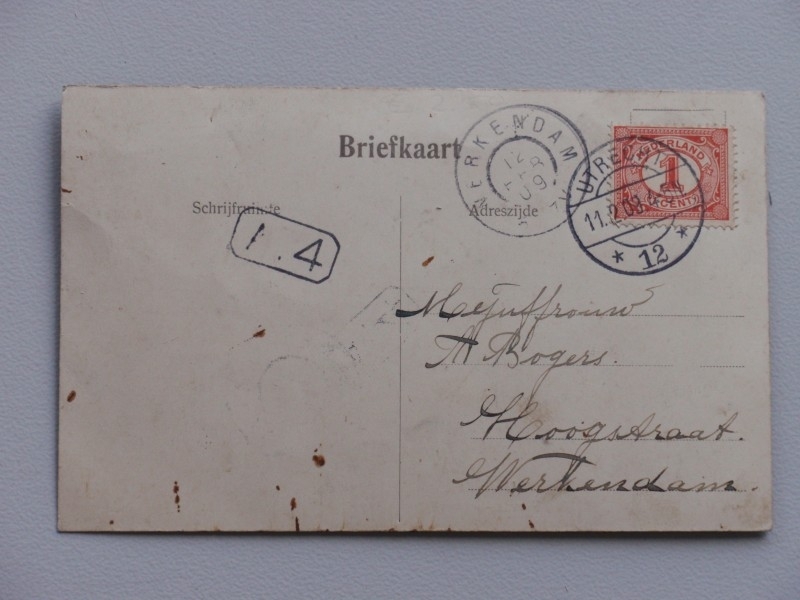 Briefkaart
Schrijfruimte
Adreszijde
WERKENDAM
12
FEB
09
UTRECHT
11.2.09
* 12 *
NEDERLAND
1
CENT
1.4
Mejuffrouw
A Bogers.
Hoogstraat.
Werkendam.